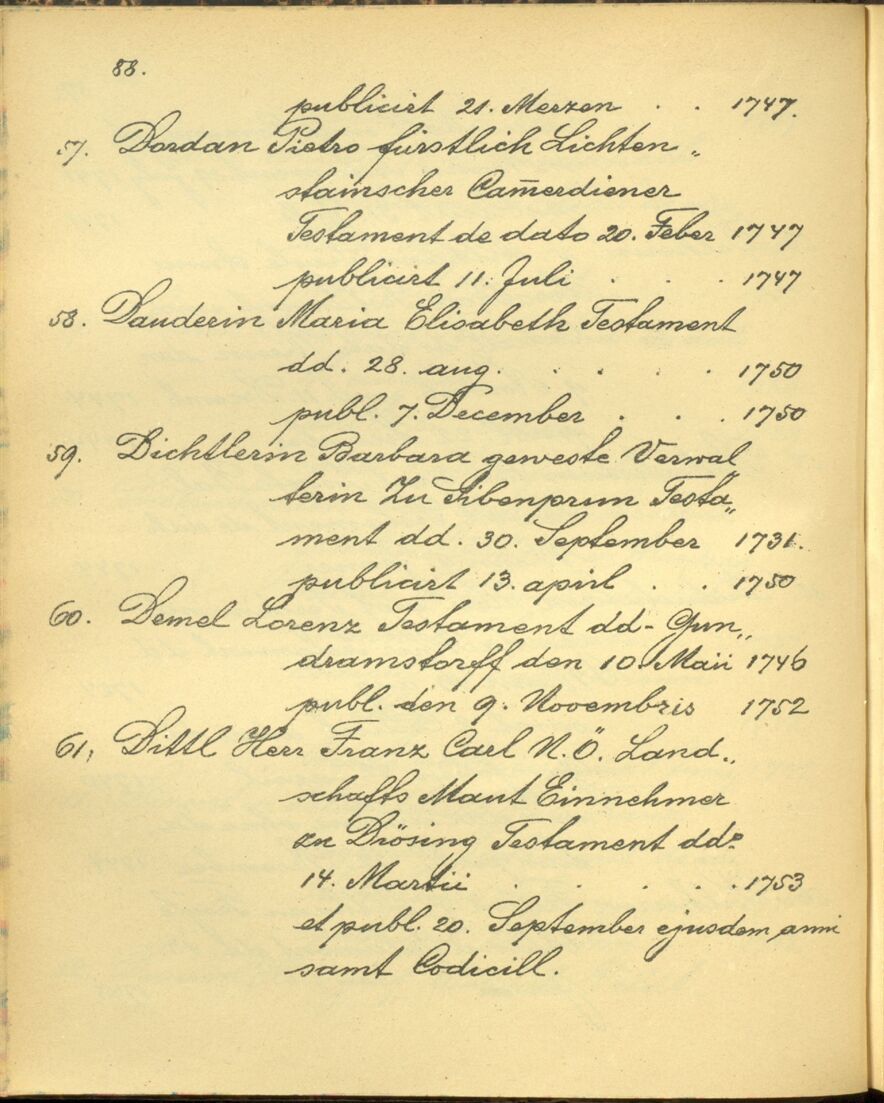 88.
publicirt 21. Merzen . . 1747.
57. Dordan Pietro fürstlich Lichten„
stainscher Cam̅erdiener
Testament de dato 20. Feber 1747
publicirt 11. Juli . . . 1747
58. Dauderin Maria Elisabeth Testament
dd. 28. aug. . . . . 1750
publ. 7. December . . . 1750
59. Dichtlerin Barbara geweste Verwal„
terin Zu Sibenprunn Testa„
ment dd. 30. September 1731.
publicirt 13. april . . 1750
60. Demel Lorenz Testament dd- Gun„
dramstorff den 10. Maii 1746
publ. den 9. Novembris 1752
61, Dittl Herr Franz Carl N.Ö. Land„
schafts Maut Einnehmer
zu Drösing Testament ddo
14. Martii . . . . . 1753
et publ. 20. September ejusdem anni
samt Codicill.